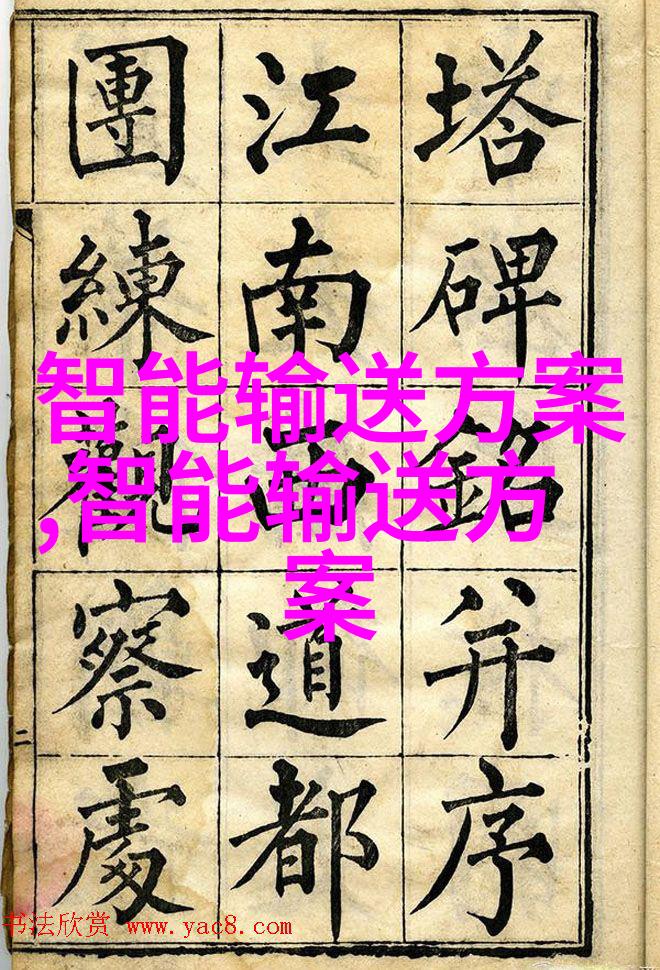 塔碑銘并序
江南西道都
團練觀察處
智能输送方案
,智能输送方
案
二
书法欣赏 www.yac8.com